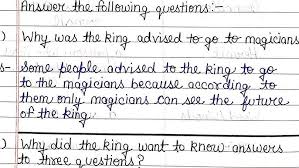 Answer the following questions:-
) Why was the king advised to go to magicians
s- Some people advised to the king to go
to the magicians because according to
them only magicians can see the future
of the king.
) Why did the king want to know answers
to three questions?